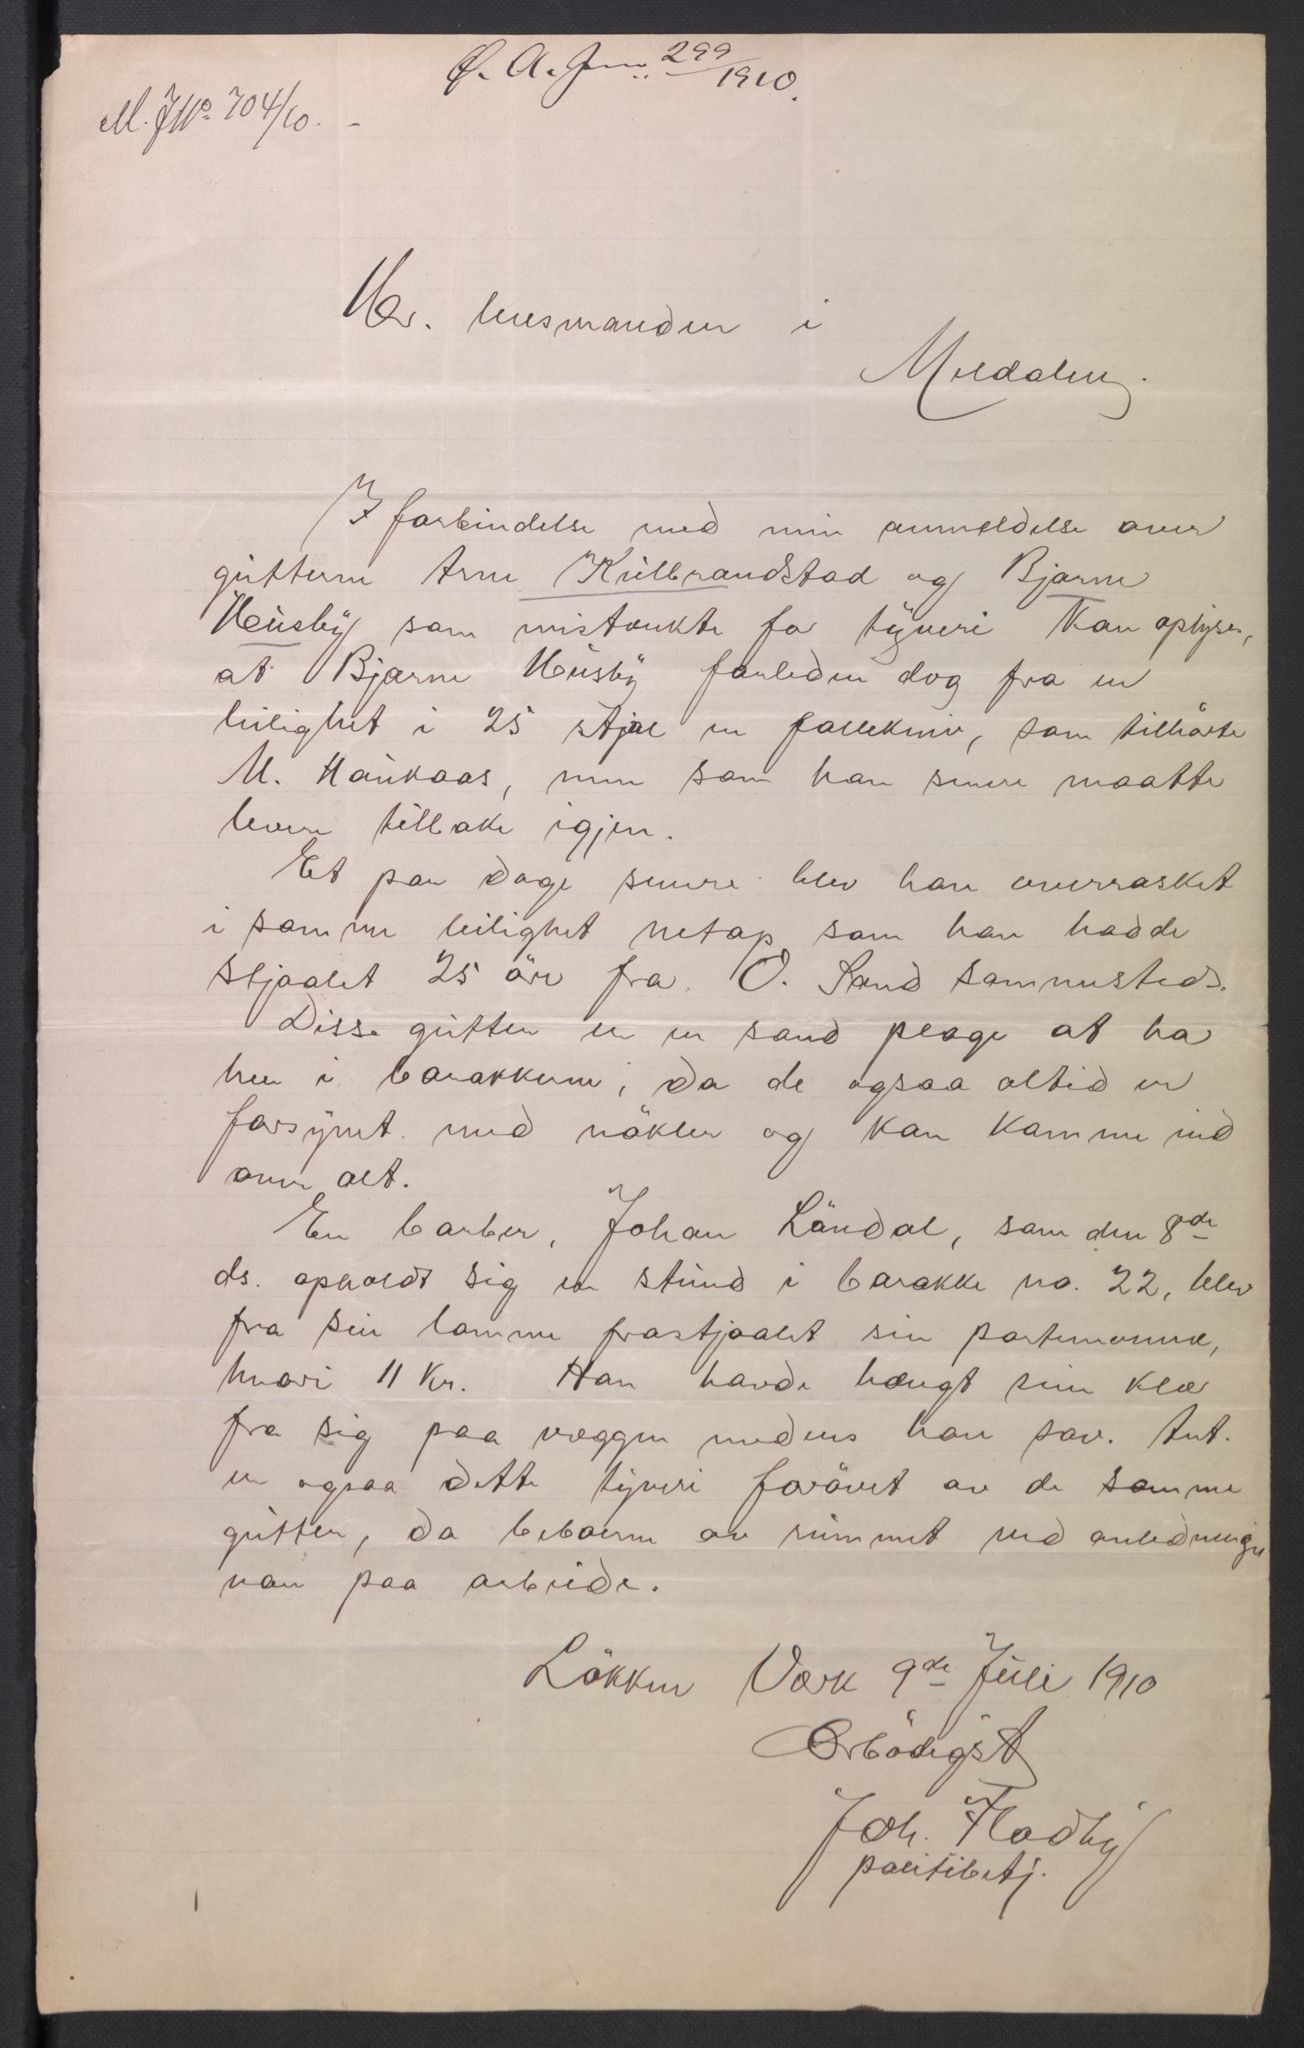 Ø. A. Jnr. 299/1910.
M. J No. 704/10. -
Hr. lensmanden i
Meldalen.
I forbindelse med min anmeldelse over
gutterne Arne Kulbrandstad og Bjarne
Husby som mistænkte for tyveri kan oplyses,
at Bjarne Husby forleden dag fra en
leilighet i 25 stjal en follekniv, som tilhörte
M. Haukaas, men som han senere maatte
levere tilbake igjen.
Et par dage senere blev han overrasket
i samme leilighet netop som han hadde
stjaalet 25 öre fra O. Sand sammesteds.
Disse gutter er en sand plage at ha
her i barakkerne, da de ogsaa altid er
forsynet med nökler og kan komme ind
over alt.
En barber, Johan Löndal, som den 8de
ds. opholdt sig en stund i barakke no. 22, blev
fra sin lomme frastjaalet sin portemonnæ,
hvori 11 kr. Han havde hængt sine klær
fra sig paa væggen medens han sov. Ant.
er ogsaa dette tyveri forövet av de samme
gutter, da beboerne av rummet ved anledningen
var paa arbeide.
Lökken Værk 9de Juli 1910
Ærbödigst
Joh. Fladby
politibetj.